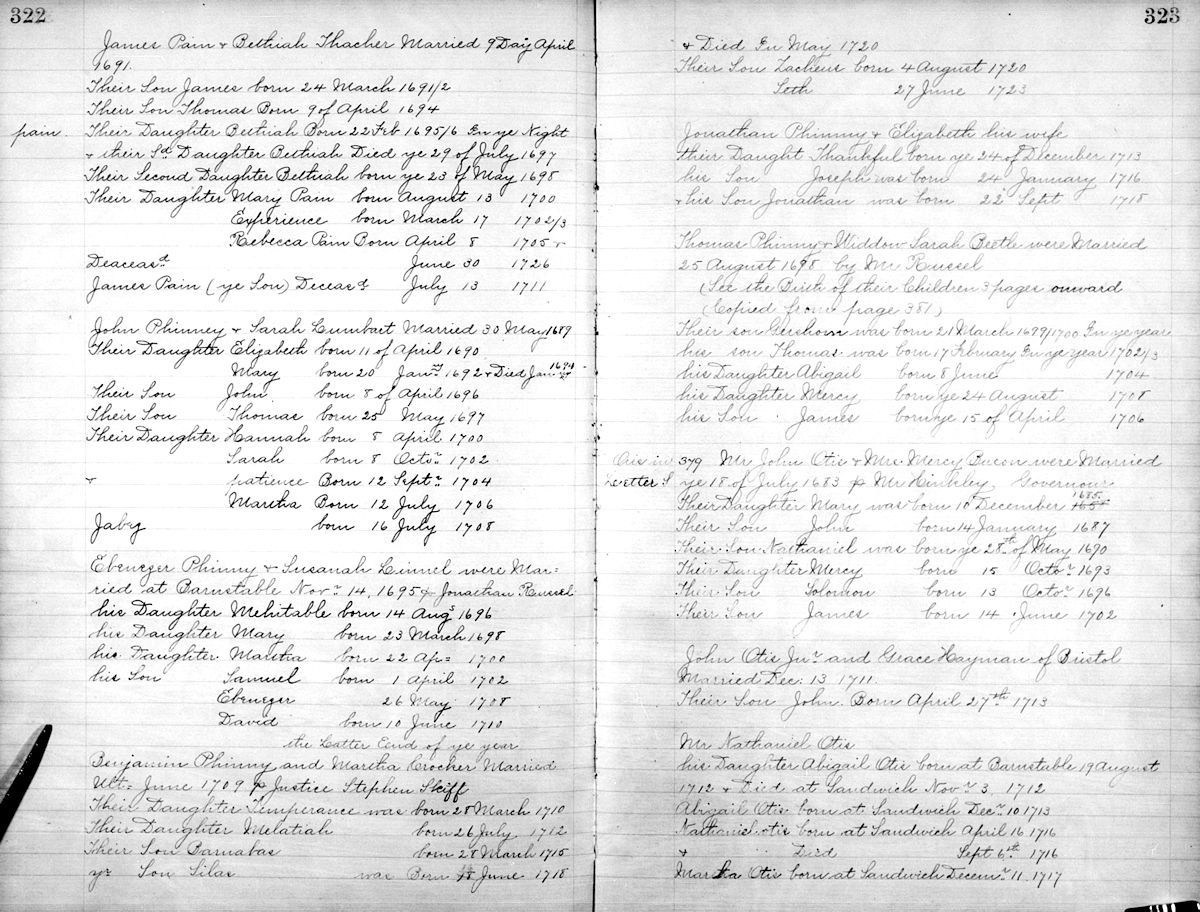 322
James Pain & Bethiah Thacher Married 9 Day April
1691.
Their Son James born 24 March 1691/2
Their Son Thomas Born 9 of April 1694
pain. Their Daughter Bethiah Born 22 Feb 1695/6 In ye Night
& their Sd Daughter Bethiah Died ye 29 of July 1697
Their Second Daughter Bethiah born ye 23 of May 1698
Their Daughter Mary Pain born August 13 1700
Experience born March 17 1702/3
Rebecca Pain Born April 8 1705 &
Deaceasd June 30 1726
James Pain (ye Son) Deceasd July 13 1711
John Phinney & Sarah Lumbart Married 30 May 1689
Their Daughter Elizabeth born 11 of April 1690
Mary born 20 Janry 1692 & Died Janry
Their Son John born 8 of April 1696
Their Son Thomas born 25 May 1697
Their Daughter Hannah born 8 April 1700
Sarah born 8 Octor 1702
& patience Born 12 Septr 1704
Martha Born 12 July 1706
Jabez born 16 July 1708
Ebenezer Phinny & Susanah Linnel were Mar=
ried at Barnstable Novr 14, 1695 p Jonathan Russel
his Daughter Mehitable born 14 Augs 1696
his Daughter Mary born 23 March 1698
his Daughter Martha born 22 Ap= 1700
his Son Samuel born 1 April 1702
Ebenezer 26 May 1708
David born 10 June 1710
the Latter Eend of ye year
Benjamin Phinny and Martha Crocher Married
Ult= June 1709 p Justice Stephen Skiff
Their Daughter Temperance was born 28 March 1710
Their Daughter Melatiah born 26 July 1712
Their Son Barnabas born 28 March 1715
yr Son Silas was Born 18 June 1718
323
& Died In May 1720
Their Son Zacheus born 4 August 1720
Seth 27 June 1723
Jonathan Phinny & Elizabeth his wife
their Daught Thankful born ye 24 of December 1713
his Son Joseph was born 24 January 1716
& his Son Jonathan was born 22 Sept 1718
Thomas Phinny & Widdow Sarah Beetle were Married
25 August 1698 by Mr Russel
(See the Birth of their Children 3 pages onward
(Copied from page 381)
Their son Gershom was born 21 March 1699/1700 In ye year
his son Thomas was born 17 February In ye year 1702/3
his Daughter Abigail born 8 June 1704
his Daughter Mercy born ye 24 August 1708
his Son James born ye 15 of April 1706
Otis in 379 Mr John Otis & Mrs Mercy Bacon were Married
Letter S ye 18 of July 1683 p Mr Hinkley, Governour
1685
Their Daughter Mary was born 10 December
Their Son John born 14 January 1687
Their Son Nathaniel was born ye 28th of May 1690
Their Daughter Mercy born 15 Octor 1693
Their Son Solomon born 13 Octor 1696
Their Son James born 14 June 1702
John Otis Junr and Grace Hayman of Bristol
Married Dec: 13 1711
Their Son John Born April 27th 1713
Mr Nathaniel Otis
his Daughter Abigail Otis born at Barnstable 19 August
1712 & Died at Sandwich Novr 3, 1712
Abigail Otis born at Sandwich Decr 10 1713
Nathaniel Otis born at Sandwich April 16 1716
& " " Died Sept 6th 1716
Martha Otis born at Sandwich Decemr 11 1717